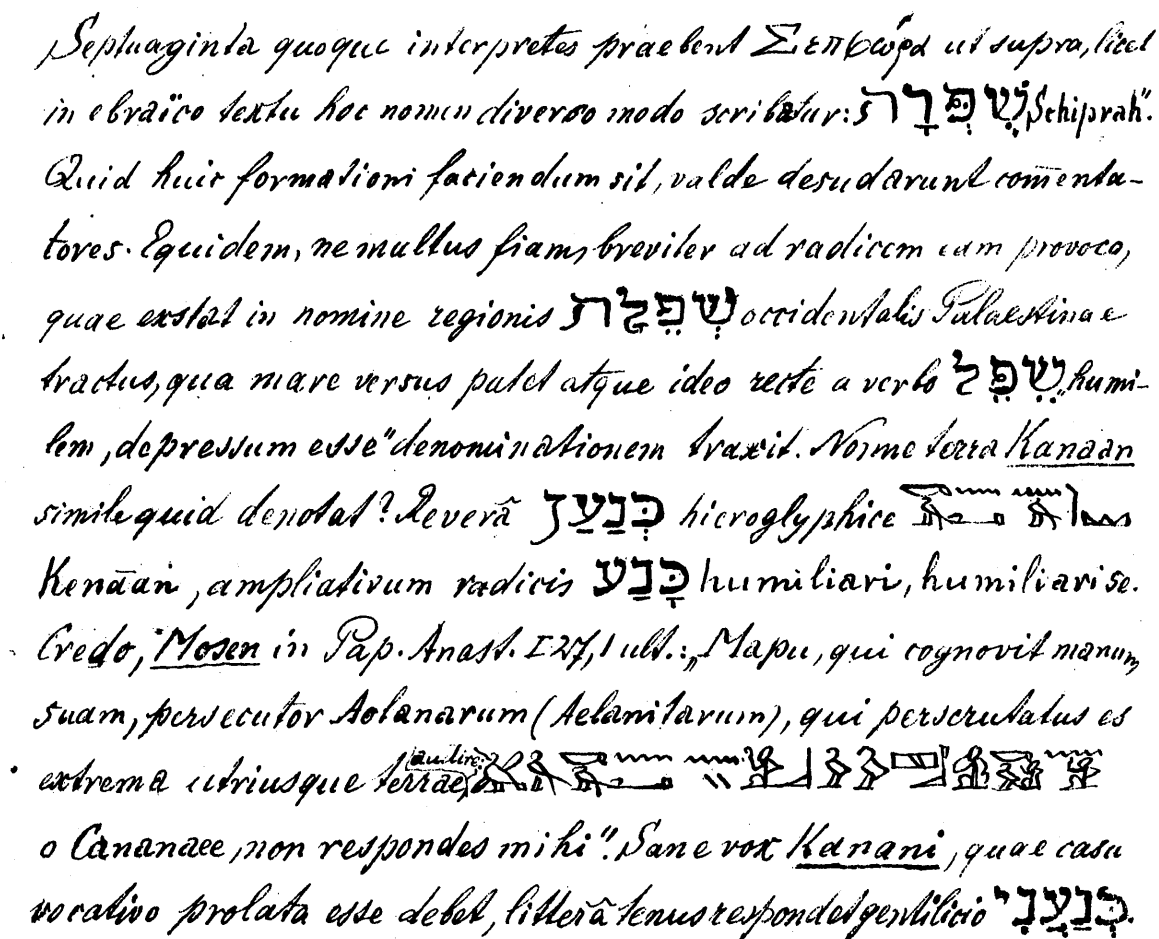 Septuaginta quoque interpretes praebent Σεπφώρα ut supra, licet
in ebraïco textu hoc nomen diverso modo scribatur: שִׁפְרָה „Schiprah”.
Quid huic formationi faciendum sit, valde desudarunt com̄enta-
tores. Equidem, ne multus fiam, breviter ad radicem eam provoco,
quae exstat in nomine regionis שְׁפֵלָת occidentalis Palaestinae
tractus, qua mare versus patet atque ideo recte a verbo שָׁפֵל „humi-
lem, depressum esse” denominationem traxit. Nonne terra Kanaan
simile quid denotat? Reverâ כְּנַעַן hieroglyphice
Kenāan, ampliativum radicis כָּנַע humiliari, humiliari se.
Credo, Mosen in Pap. Anast. I 27, 1 ult.: „Mapu, qui cognovit manum
suam, persecutor Aolanarum (Aelanitarum), qui perscrutatus es
extrema utriusque terrae,
o Cananaee, non respondes mihi”. Sane vox Kanani, quae casu
vocativo prolata esse debet, litterâ tenus respondet gentilicio כְּנַעֲנִי.